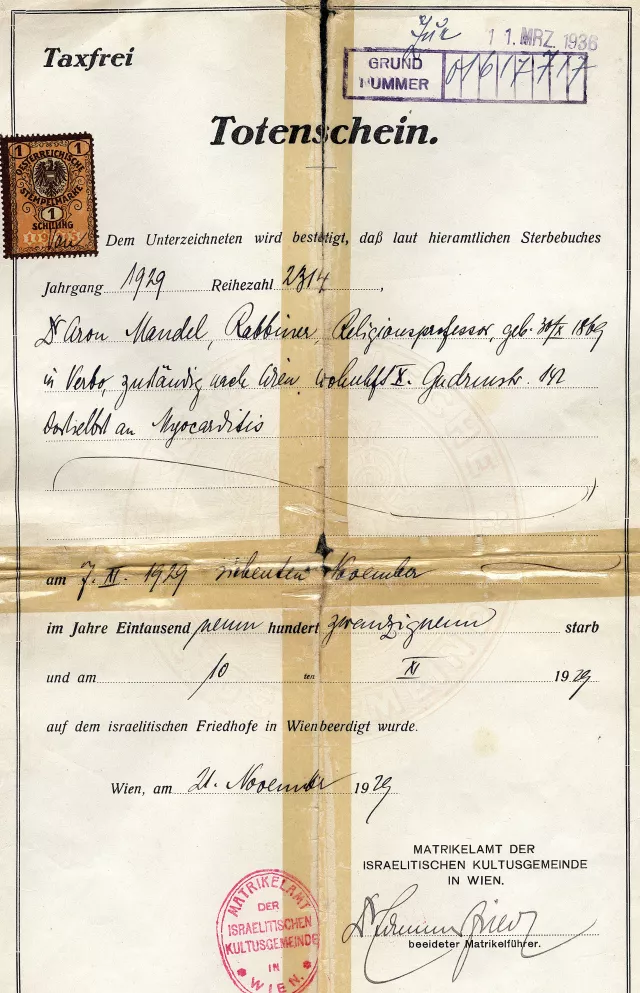 Taxfrei
11. MRZ. 1936
GRUND
NUMMER 01617717
Totenschein.
1 1
ÖSTERREICHISCHE
STEMPELMARKE
1
SCHILLING
Dem Unterzeichneten wird bestätigt, daß laut hieramtlichen Sterbebuches
Jahrgang 1929 Reihezahl 2314,
Dr Aron Mandel, Rabbiner, Religionsprofessor, geb. 30/X 1869
in Verbo, zuständig nach Wien, wohnhft X. Gudrunstr. 142
dortselbst an Myocarditis
am 7. XI. 1929 siebenten November
im Jahre Eintausend neun hundert zwanzigneun starb
und am 10 ten XI 1929
auf dem israelitischen Friedhofe in Wien beerdigt wurde.
Wien, am 21. November 1929
MATRIKELAMT DER
ISRAELITISCHEN KULTUSGEMEINDE
IN WIEN.
beeideter Matrikelführer.
MATRIKELAMT
DER
ISRAELITISCHEN
KULTUSGEMEINDE
IN
WIEN.